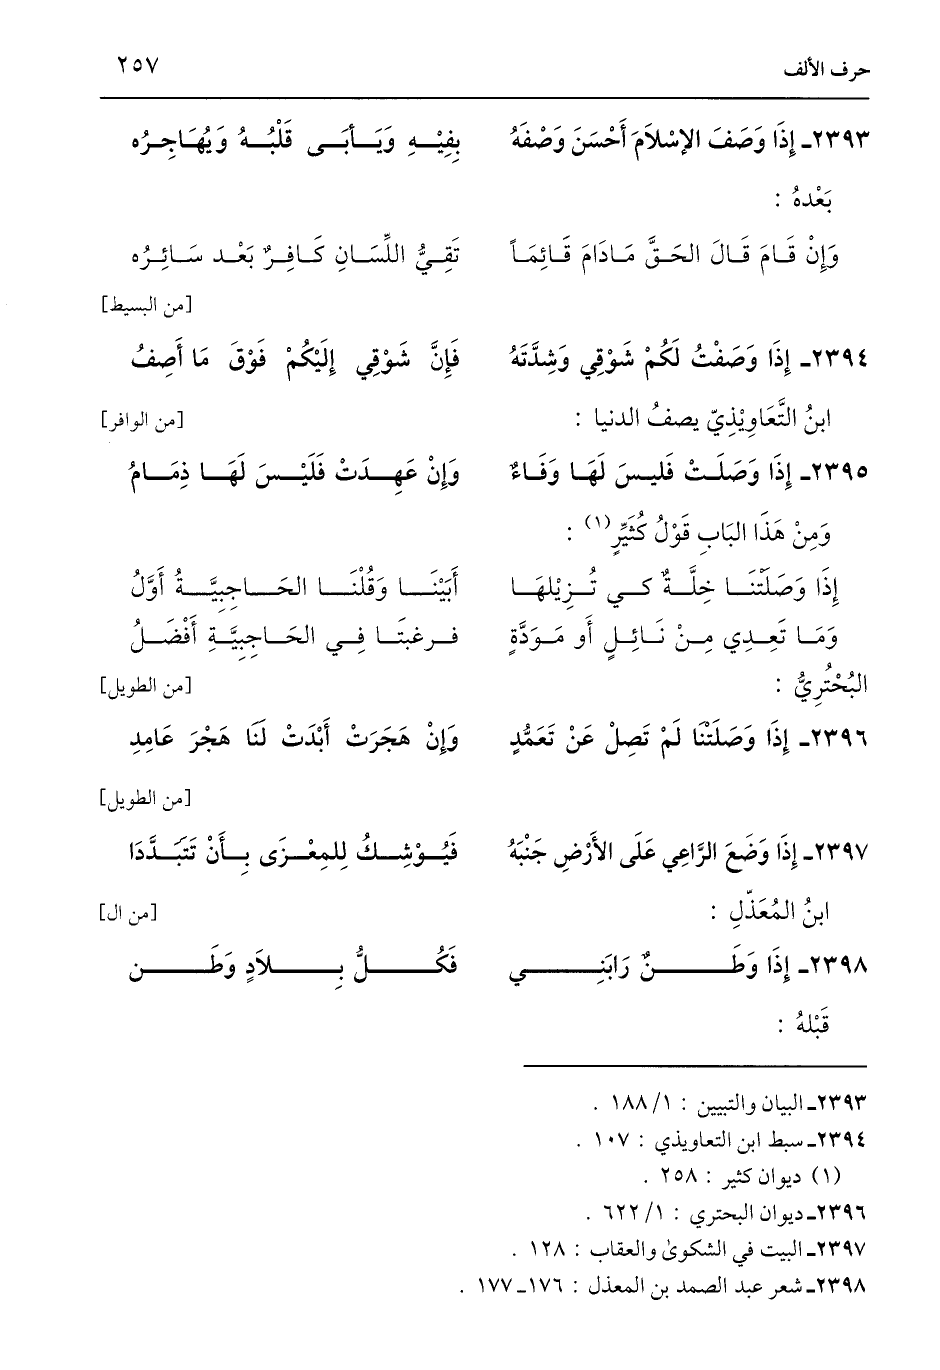 حرف الألف ٢٥٧
٢٣٩٣ـ إِذَا وَصَفَ الإسْلَامَ أَحْسَنَ وَصْفَهُ بِفِيْهِ وَيَأبَى قَلْبُهُ وَيُهَاجِرُه
بَعْدهُ :
وَإِنْ قَامَ قَالَ الحَقَّ مَادَامَ قَائِمَاً تَقِيُّ اللِّسَانِ كَافِرٌ بَعْد سَائِرُه
[من البسيط]
٢٣٩٤ـ إِذَا وَصَفْتُ لَكُمْ شَوْقِي وَشِدَّتَهُ فَإِنَّ شَوْقِي إِلَيْكُمْ فَوْقَ مَا أَصِفُ
ابنُ التَّعَاوِيْذِيّ يصفُ الدنيا : [من الوافر]
٢٣٩٥ـ إِذَا وَصَلَتْ فَليسَ لَهَا وَفَاءٌ وَإِنْ عَهِدَتْ فَلَيْسَ لَهَا ذِمَامُ
وَمِنْ هَذَا البَابِ قَوْلُ كُثَيِّرٍ(١) :
إِذَا وَصَلَتْنَا خِلَّةٌ كي تُزِيْلهَا أَبَيْنَا وَقُلْنَا الحَاجِبِيَّةُ أَوَّلُ
وَمَا تَعِدِي مِنْ نَائِلٍ أو مَوَدَّةٍ فرغبَتَا فِي الحَاجِبِيَّةِ أَفْضَلُ
البُحْتُرِيُّ : [من الطويل]
٢٣٩٦ـ إِذَا وَصَلَتْنَا لَمْ تَصِلْ عَنْ تَعَمُّدٍ وَإِنْ هَجَرَتْ أَبْدَتْ لَنَا هَجْرَ عَامِدِ
[من الطويل]
٢٣٩٧ـ إِذَا وَضَعَ الرَّاعِي عَلَى الأَرْضِ جَنْبَهُ فَيُوْشِكُ لِلمِعْزَى بِأَنْ تَتَبَدَّدَا
ابنُ المُعَذّلِ : [من ال]
٢٣٩٨ـ إِذَا وَطَنٌ رَابَنِي فَكُلُّ بِلاَدٍ وَطَن
قَبْلهُ :
٢٣٩٣ـ البيان والتبيين : ١/ ١٨٨ .
٢٣٩٤ـ سبط ابن التعاويذي : ١٠٧ .
(١) ديوان كثير : ٢٥٨ .
٢٣٩٦ـ ديوان البحتري : ١/ ٦٢٢ .
٢٣٩٧ـ البيت في الشكوىٰ والعقاب : ١٢٨ .
٢٣٩٨ـ شعر عبد الصمد بن المعذل : ١٧٦ـ١٧٧ .